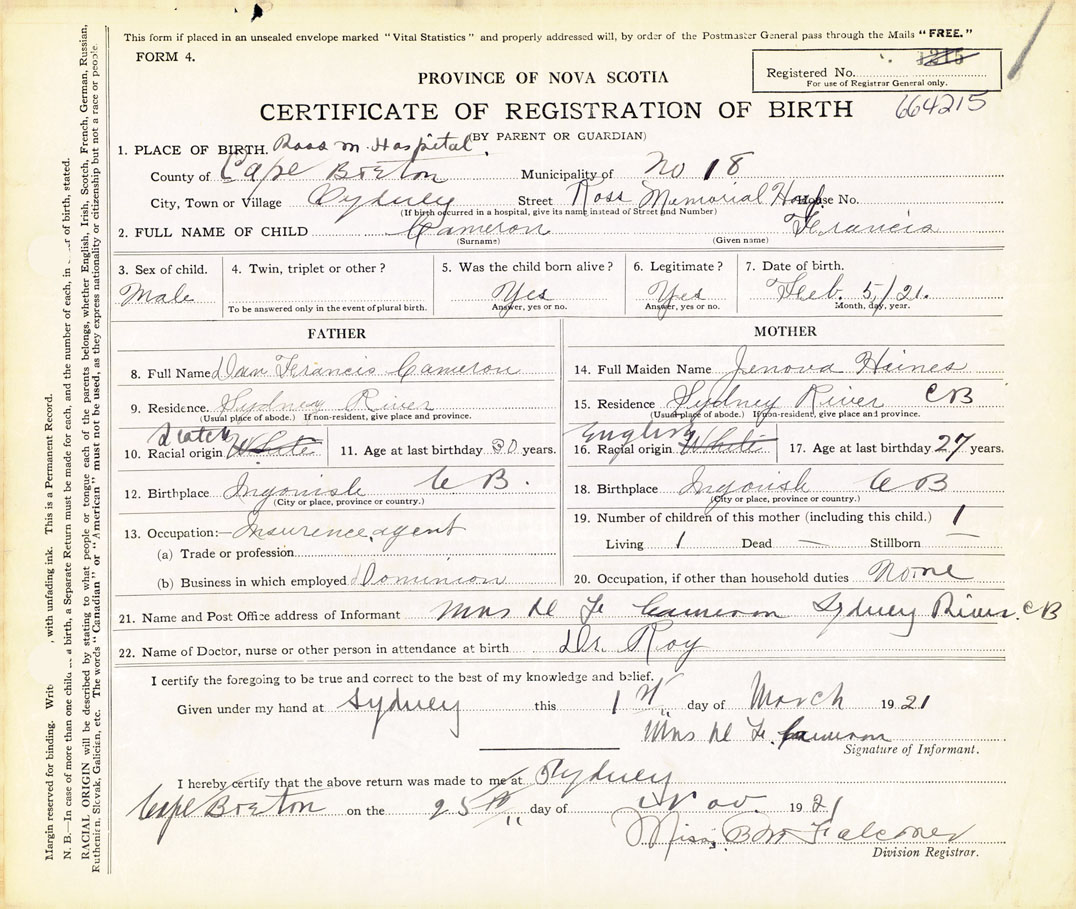 This form if placed in an unsealed envelope marked "Vital Statistics" and properly addressed will, by order of the Postmaster General pass through the Mails "FREE."
FORM 4.
Registered No. 1215
For use of Registrar General only.
PROVINCE OF NOVA SCOTIA
CERTIFICATE OF REGISTRATION OF BIRTH 664215
(BY PARENT OR GUARDIAN)
1. PLACE OF BIRTH. Ross M. Hospital
County of Cape Breton Municipality of No 18
City, Town or Village Sydney Street Ross Memorial Hosp. House No.
(If birth occurred in a hospital, give its name instead of Street and Number)
2. FULL NAME OF CHILD Cameron Francis
(Surname) (Given name)
3. Sex of child. 4. Twin, triplet or other? 5. Was the child born alive? 6. Legitimate? 7. Date of birth.
Male Yes Yes Feb. 5/21.
To be answered only in the event of plural birth. Answer, yes or no. Answer, yes or no. Month, day, year.
FATHER
8. Full Name Dan Francis Cameron
9. Residence. Sydney River
(Usual place of abode.) If non-resident, give place and province.
Scotch
10. Racial origin White 11. Age at last birthday 30 years.
12. Birthplace Ingonish C B.
(City or place, province or country.)
13. Occupation:— Insurence agent
(a) Trade or profession
(b) Business in which employed Dominion
MOTHER
14. Full Maiden Name Jenova Haines
15. Residence Sydney River CB
(Usual place of abode.) If non-resident, give place and province.
English
16. Racial origin White 17. Age at last birthday 27 years.
18. Birthplace Ingonish C B
(City or place, province or country.)
19. Number of children of this mother (including this child.) 1
Living 1 Dead — Stillborn —
20. Occupation, if other than household duties None
21. Name and Post Office address of Informant Mrs D F Cameron Sydney River. CB
22. Name of Doctor, nurse or other person in attendance at birth Dr. Roy
I certify the foregoing to be true and correct to the best of my knowledge and belief.
Given under my hand at Sydney this 1st day of March 1921
Mrs D F. Cameron
Signature of Informant.
I hereby certify that the above return was made to me at Sydney
Cape Breton on the 25th day of Nov. 1921
Miss B M Falconer
Division Registrar.
Margin reserved for binding. Writ , with unfading ink. This is a Permanent Record.
N. B.—In case of more than one child a birth, a Separate Return must be made for each, and the number of each, in of birth, stated.
RACIAL ORIGIN will be described by stating to what people or tongue each of the parents belongs, whether English, Irish, Scotch, French, German, Russian,
Ruthenian, Slovak, Galician, etc. The words "Canadian" or "American" must not be used, as they express nationality or citizenship but not a race or people.